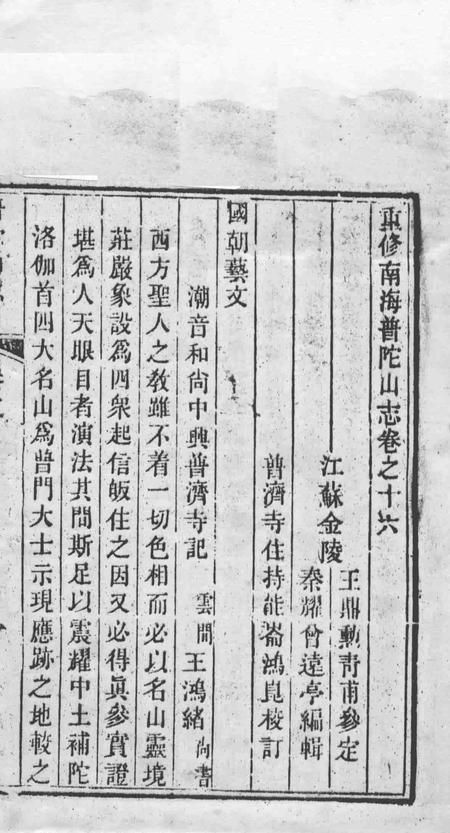 重修南海普陀山志卷之十六
江蘇金陵
王鼎勳靑甫參定
秦耀曾遠亭編輯
普濟寺住持能崙鴻崑校訂
國朝藝文
潮音和尙中興普濟寺記 雲間 王鴻緒 尚書
西方聖人之教雖不着一切色相而必以名山靈境
莊嚴象設爲四衆起信皈住之因又必得眞參實證
堪爲人天眼目者演法其間斯足以震耀中土補陀
洛伽首四大名山爲普門大士示現應跡之地較之